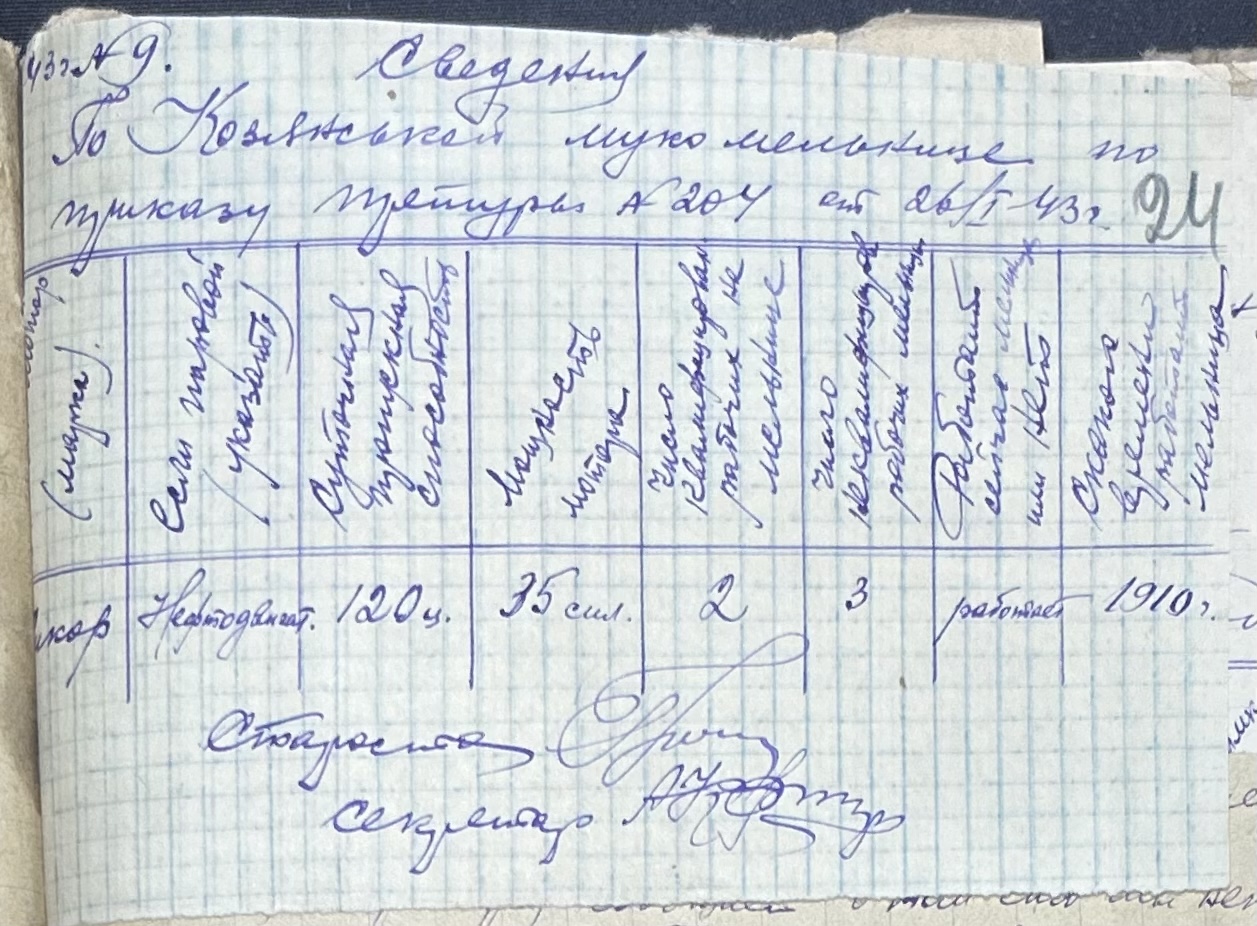 43г. № 9. Сведения
По Козянськой мукомельнице по
приказу претуры № 204 от 26/I-43 г. 24
мотор (марка).
Если паровой (указать)
Суточная пропускная способность
Мощность мотора
Число квалифицирован рабочих на мельнице
Число неквалифициров рабочих мельницы
Работает сейчас мельница или нет
Сколько времени работает мельница
Нефтодвигат. 120 ц. 35 сил. 2 3 работает 1910 г.
Староста
Секретар